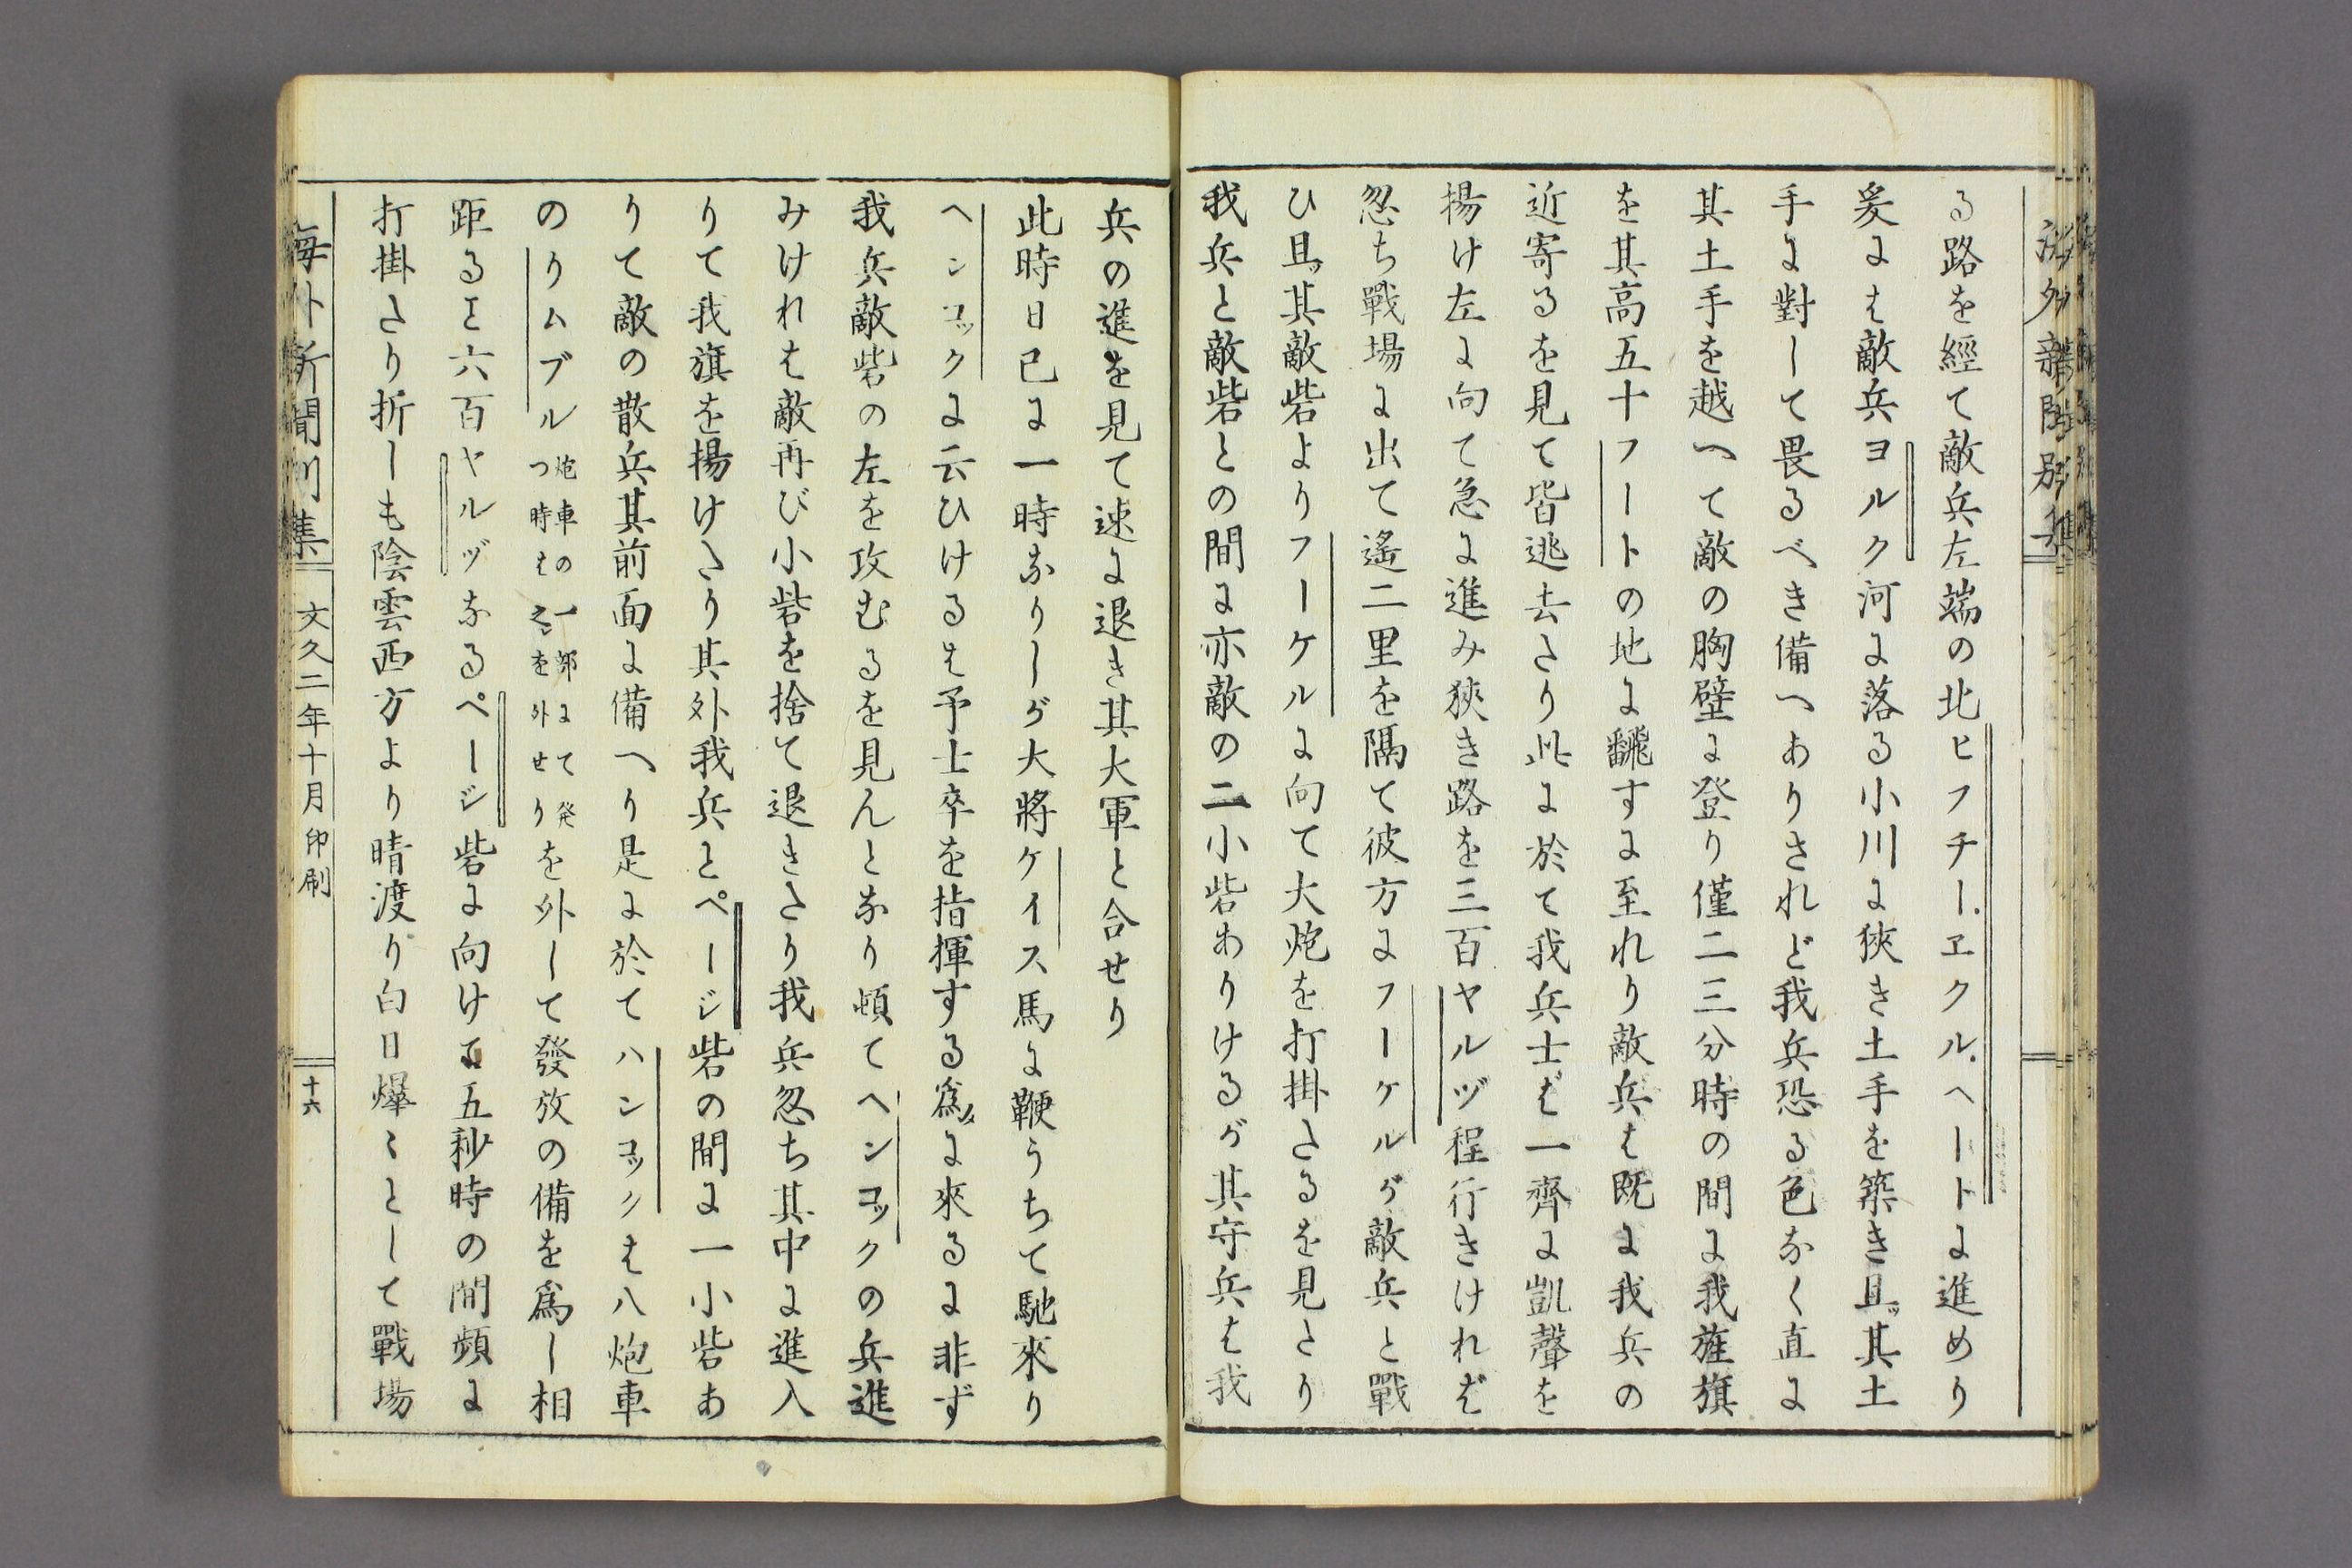 る路を經て敵兵左端の北ヒフチー.ヱクル.ヘートに進めり
爰には敵兵ヨルク河に落る小川に狹き土手を築き且ッ其土
手に對して畏るべき備へありされど我兵恐る色なく直に
其土手を越へて敵の胸壁に登り僅二三分時の間に我旌旗
を其高五十フートの地に飜すに至れり敵兵は既に我兵の
近寄るを見て皆逃去たり此に於て我兵士ば一齊に凱聲を
揚け左に向て急に進み狹き路を三百ヤルヅ程行きけれど
忽ち戰場に出て遙二里を隔て彼方にフーケルが敵兵と戰
ひ且ッ其敵砦よりフーケルに向て大炮を打掛たるを見たり
我兵と敵砦との間に亦敵の二小砦ありけるが其守兵は我
兵の進を見て速に退き其大軍と合せり
此時日已に一時なりしが大將ケイス馬に鞭うちて馳來り
ヘンコックに云ひけるは予士卒を指揮する爲メに來るに非ず
我兵敵砦の左を攻むるを見んとなり頓てヘンコックの兵進
みけれは敵再び小砦を捨て退きたり我兵忽ち其中に進入
りて我旗を揚けたり其外我兵とページ砦の間に一小砦あ
りて敵の散兵其前面に備へり是に於てハンコックは八炮車
のリムブル炮車の一部にて発つ時は之を外せりを外して發放の備を爲し相
距ると六百ヤルヅなるページ砦に向け五秒時の間頻に
打掛たり折しも陰雲西方より晴渡り白日爆〻として戰場
海外新聞別集
文久二年十月印刷
十六